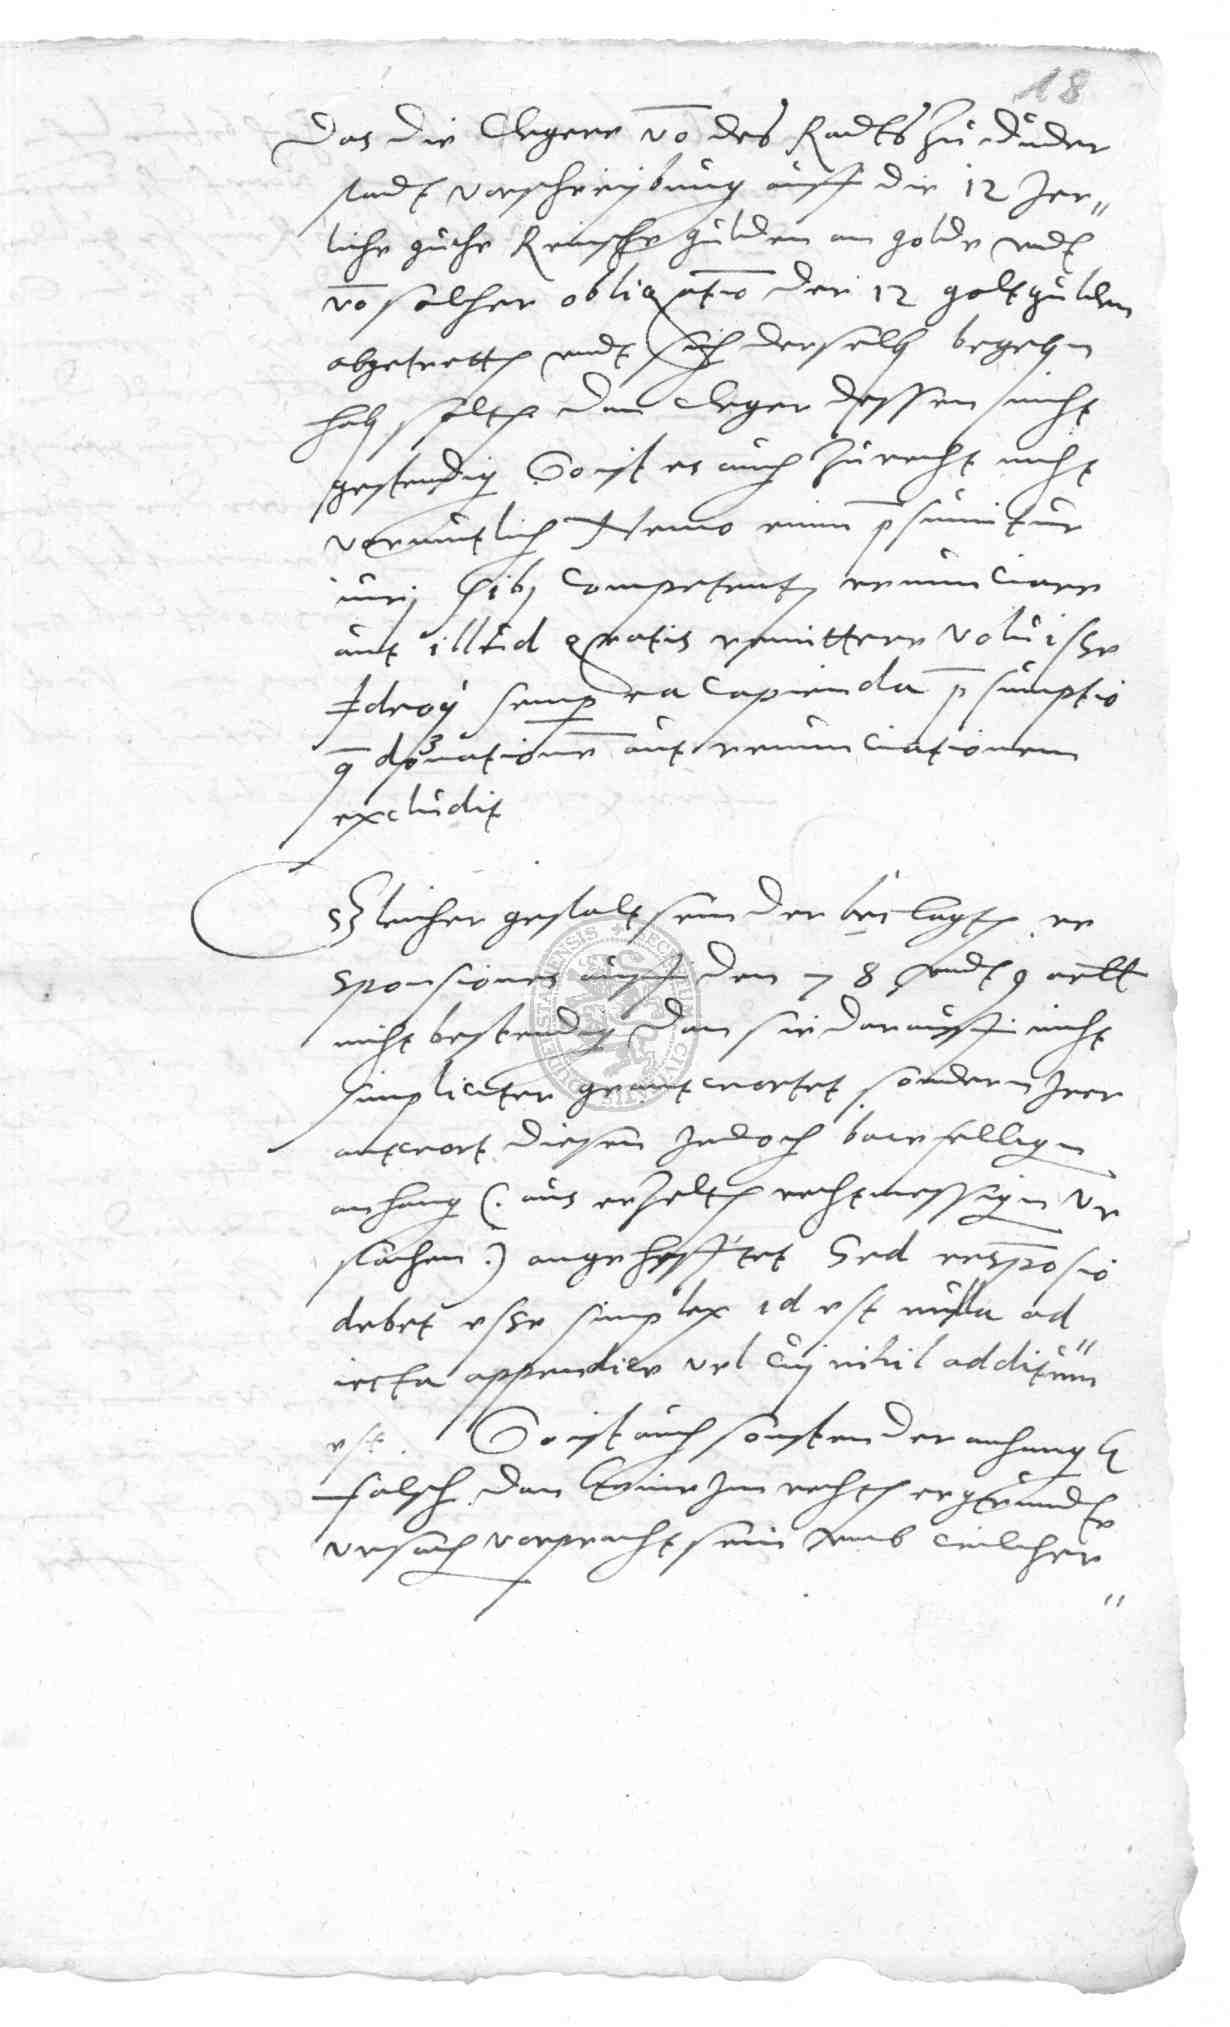 18
Das die Clegere vō des Radts zu Duder
stadt vorschreybung auff die 12 Jer„
liche guthe Reinsche gulden an golde undt
vō solcher obligatiō der 12 goltgulden
abgetretten undt sich derselben begeben
haben solten dan Cleger dessen nicht
gestendig So ist es auch zu recht nicht
vermutlich Nemo enim p̄sumitur
iurj sibj competentj renunciare
aut illud gratis remittere voluisse
Ideoq semp ea capienda p̄sumptio
q̄ donationē aut renunciationem
excludit
Gleicher gestalt sein der beclagten re
sponsiones auff den 7 8 undt 9 artt
nicht bestendig dan sie darauff nicht
simpliciter geantwortet sondern Irer
antwort diesen jedoch bawfelligen
anhang (. aus erzelten rechtmessigen Ur
sachen .) angehefftet Sed respōsio
debet esse simplex id est nulla ad„
iecta appendice vel cuj nihil additum
est. So ist auch sonsten der anhang
falsch dan keine Im rechten ergrundte
ursach vorpracht sein umb welcher„